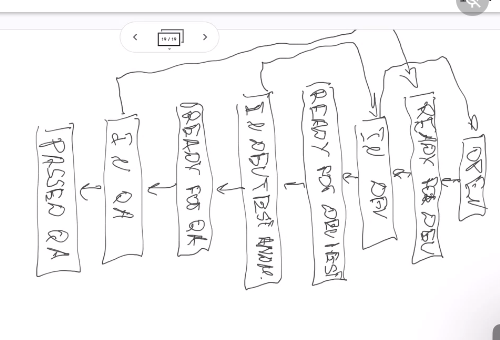 19 / 19
OPEN
READY FOR DEV
IN DEV
READY FOR DEV TEST
IN DEV TEST
READY FOR QA
IN QA
PASSED QA